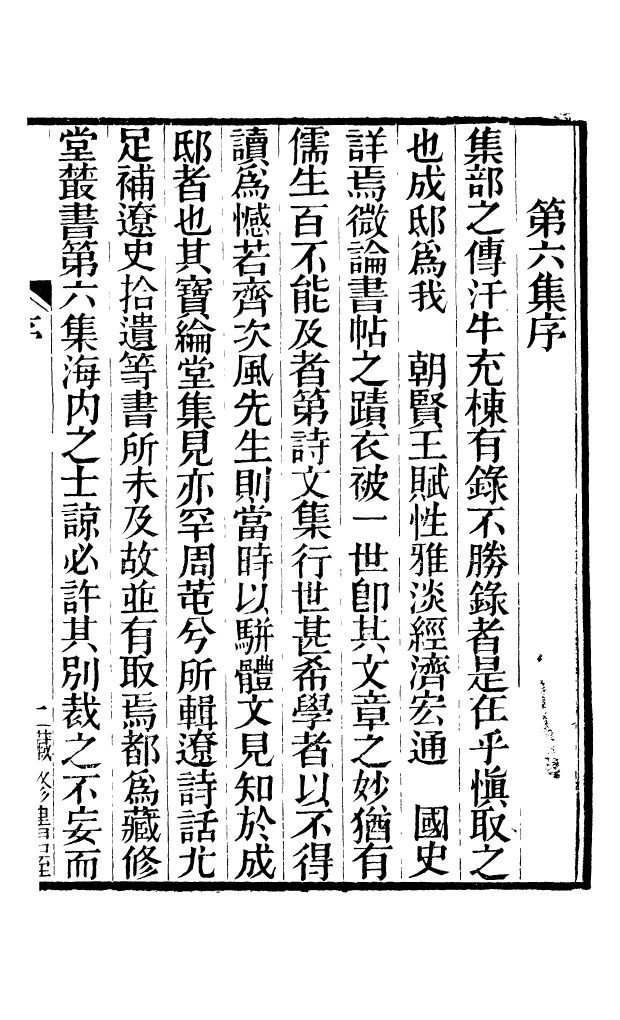 第六集序
集部之傳汗牛充棟有錄不勝錄者是在乎慎取之
也成邸爲我　朝賢王賦性雅淡經濟宏通　國史
詳焉微論書帖之蹟衣被一世卽其文章之妙猶有
儒生百不能及者第詩文集行世甚希學者以不得
讀爲憾若齊次風先生則當時以駢體文見知於成
邸者也其寶綸堂集見亦罕周芚兮所輯遼詩話尤
足補遼史拾遺等書所未及故並有取焉都爲藏修
堂叢書第六集海內之士諒必許其別裁之不妄而
序